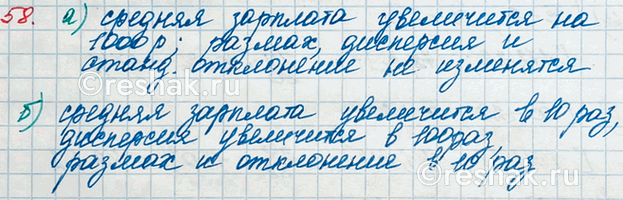 58. а) средняя зарплата увеличится на
1000 р; размах, дисперсия и
станд. отклонение не изменятся
б) средняя зарплата увеличится в 10 раз,
дисперсия увеличится в 100 раз
размах и отклонение в 10 раз
reshak.ru